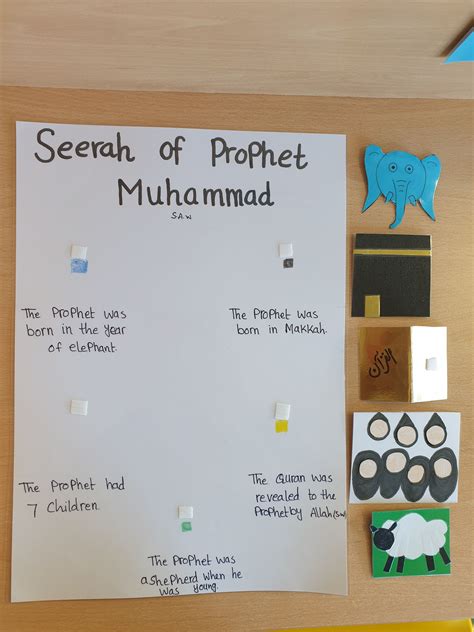 Seerah of Prophet
Muhammad
S.A.W
The Prophet was
born in the year
of elephant.
The Prophet was
born in Makkah.
القرآن
The Prophet had
7 children.
The Quran was
revealed to the
Prophet by Allah (swt)
The Prophet was
a shepherd when he
was young.